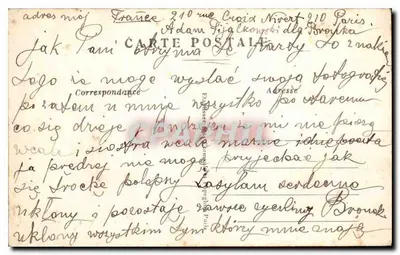 adres mój France 210 rue Croix Nivert 210 Paris
Adam Fijalkowski dla Bronka
CARTE POSTALE
Jak Pan otrzyma te kartę to
mogę wysłać swoją fotografię
Correspondance
Adresse
po zatem u mnie wszystko po staremu
co się dzieje mi nie piszą
wcale i siostra wcale idzie poczta
ja prędzej nie mogę przyjechać jak
się trochę polepszy zasyłam serdeczne
ukłony i pozostaję zawsze życzliwy Bronek
ukłony wszystkim tym który mnie znają